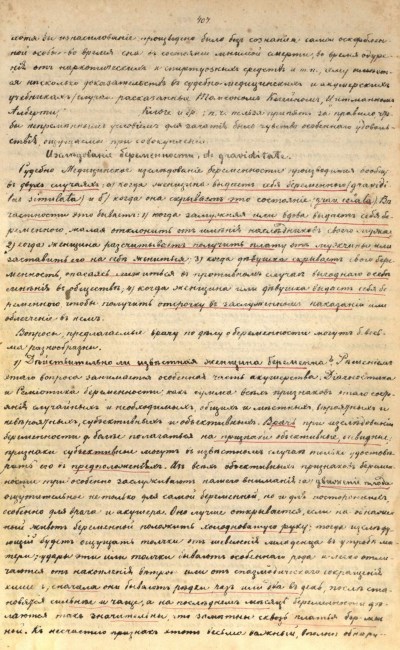 407
хотя бы изнасилование произведено было безъ сознанія самой оскорблен-
ной особы во время сна въ состояніи мнимой смерти; во время одуре-
нія отъ наркотическихъ и спиртуозныхъ средствъ и т.п., чему имеется
несколько доказательствъ въ судебно-медицинскихъ и акушерскихъ
учебникахъ (случаи рассказанны
Альберти; Клозе и др. нельзя принять за правило что
бы непременнымъ условіемъ для зачатія было чувство особеннаго удоволь-
ствія, ощущаемое при совокупленіи.
Изследованіе беременности, de graviditate.
Судебно Медицинское изследованіе беременности производимо особен-
въ двухъ случаяхъ: а) когда женщина выдаетъ себя беременною (gravidi-
tas simulata) и б) когда она скрываетъ это состояніе Въ
частности это бываетъ: 1) когда замужняя или вдова выдаетъ себя бе-
ременною, желая отклонить отъ именія наследниковъ своего мужа;
2) когда женщина рассчитываетъ получить плату отъ мужчины или
заставить его на себе жениться; 3) когда девушка скрываетъ свою бере-
менность, опасаясь лишиться въ противномъ случае выгоднаго о себе
мненія въ обществе; 4) когда женщина или девушка выдаетъ себя бе-
ременною чтобы получить отсрочку въ заслуженномъ наказаніи или
облегченіе въ немъ.
Вопросы, предлагаемые врачу по делу о беременности могутъ б. весь-
ма разнообразны.
1) Действительно ли известная женщина беременна? Решеніемъ
этаго вопроса занимается особенная часть акушерства. Діагностика
и Семіотика беременности какъ сумма всехъ признаковъ этаго состоя-
нія случайныхъ и необходимыхъ, общихъ и местныхъ, вероятныхъ и
невероятныхъ, субъективныхъ и объективныхъ. Врачъ при изследованіи
беременности д. более полагаться на признаки объективные, очевидные,
признаки субъективные могутъ въ известномъ случае только удостове-
рить его въ предположеніяхъ. Изъ всехъ объективныхъ признаковъ беремен-
ности при особенно заслуживаютъ нашего вниманія: а) движеніе плода
ощутительное не только для самой беременной, но и для постороннихъ,
особенно для врача и акушера. Оно лучше открывается, если на обнажен-
ной животъ беременной положить холодноватую руку; тогда изследу-
ющій будетъ ощущать толчки отъ шевеленія младенца въ утробе ма-
тери удары эти или толчки бываютъ особеннаго рода и легко отли-
чаются отъ накопленія ветровъ или отъ спазмодическаго сокращенія
кишекъ, сначала они бываютъ редки разъ или два въ день, после ста-
новятся сильнее и чаще, а на последнемъ месяце беременности де-
лаются такъ значительны, что заметны сквозь платья беремен-
ной. Къ несчастію признакъ этотъ весьма важный, вполне обнару-